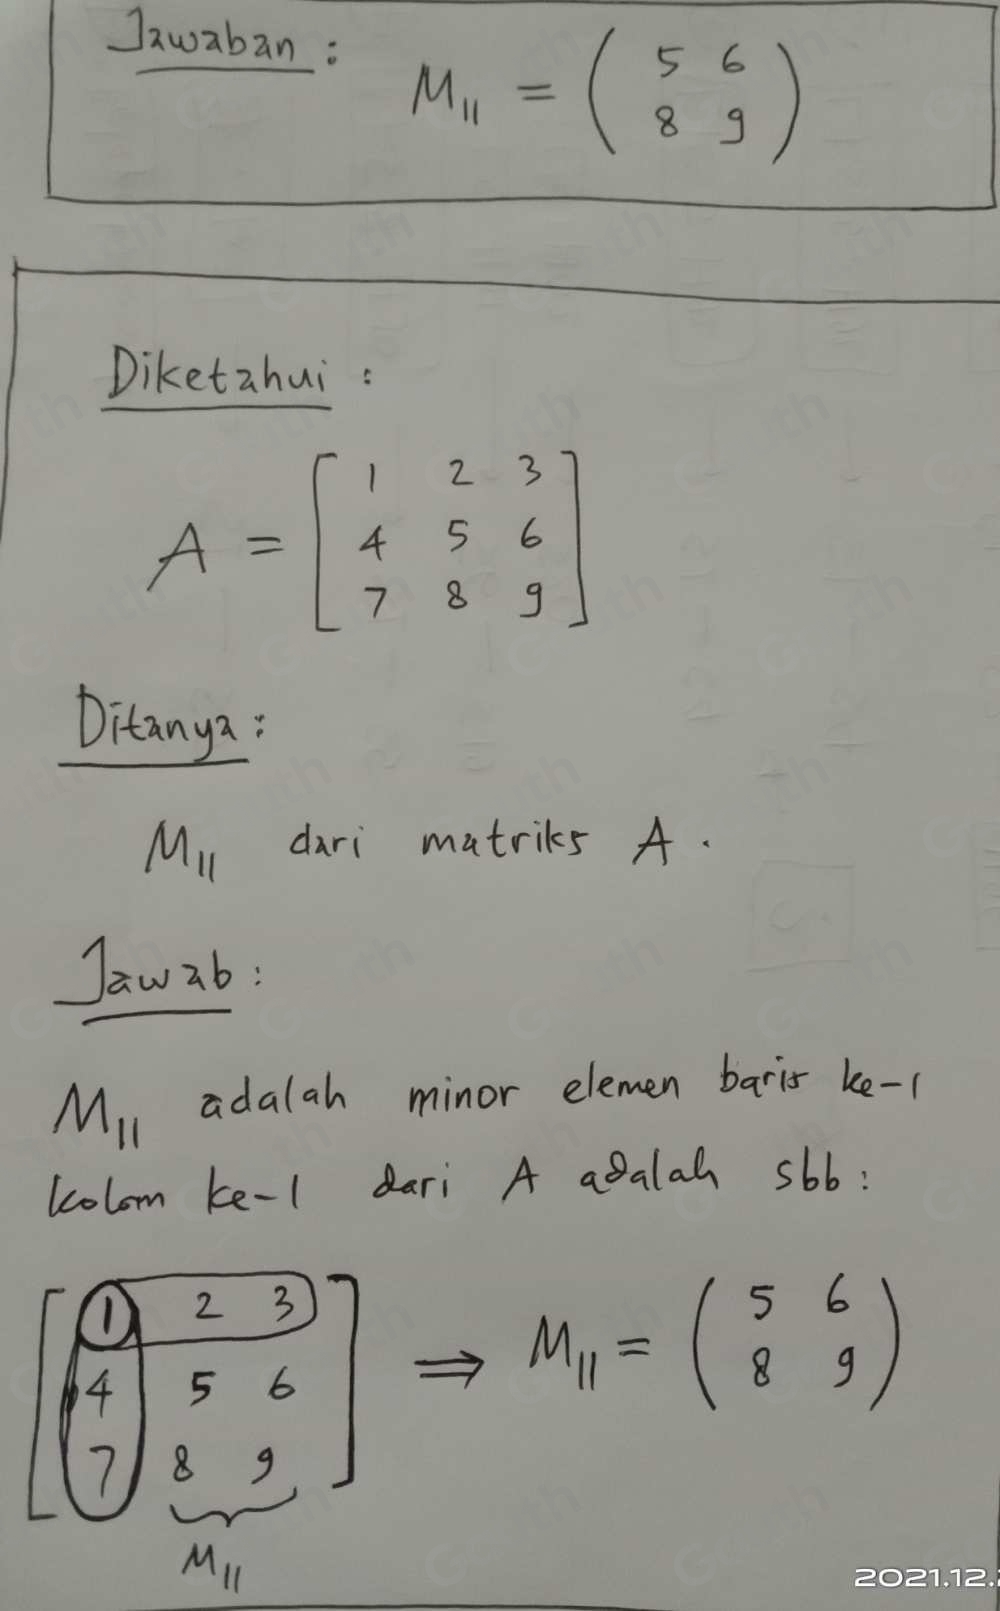 Jawaban : M₁₁ = ( 5 6
8 9 )
Diketahui :
A = [ 1 2 3
4 5 6
7 8 9 ]
Ditanya :
M₁₁ dari matriks A .
Jawab :
M₁₁ adalah minor elemen baris ke-1
kolom ke-1 dari A adalah sbb :
[ 1 2 3
4 5 6
7 8 9 ] ⇒ M₁₁ = ( 5 6
8 9 )
M₁₁
2021.12.